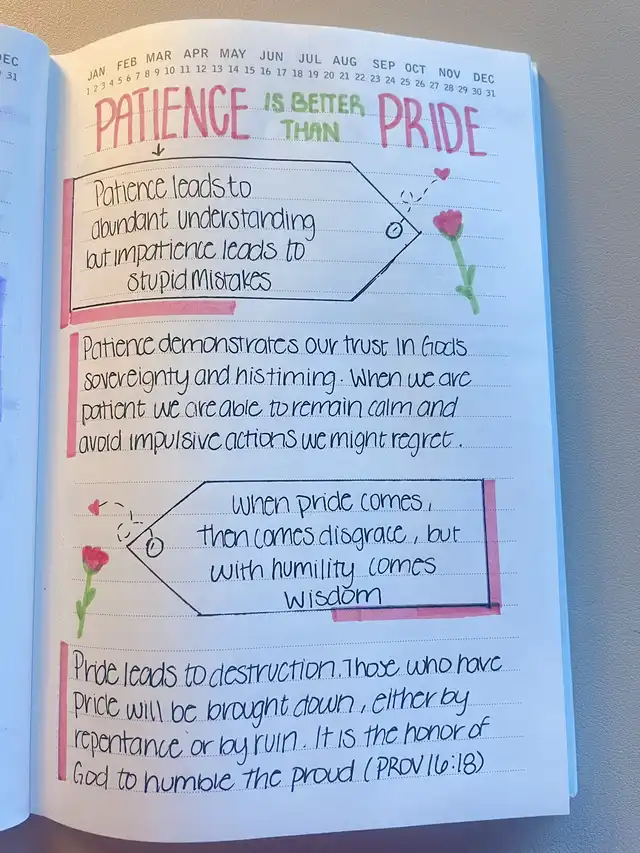 DEC
31
JAN FEB MAR APR MAY JUN JUL AUG SEP OCT NOV DEC
1 2 3 4 5 6 7 8 9 10 11 12 13 14 15 16 17 18 19 20 21 22 23 24 25 26 27 28 29 30 31
PATIENCE IS BETTER THAN PRIDE
Patience leads to
abundant understanding
but impatience leads to
stupid mistakes
Patience demonstrates our trust in God's
sovereignty and his timing. When we are
patient we are able to remain calm and
avoid impulsive actions we might regret.
When pride comes,
then comes disgrace, but
with humility comes
wisdom
Pride leads to destruction. Those who have
pride will be brought down, either by
repentance or by ruin. It is the honor of
God to humble the proud (PROV 16:18)